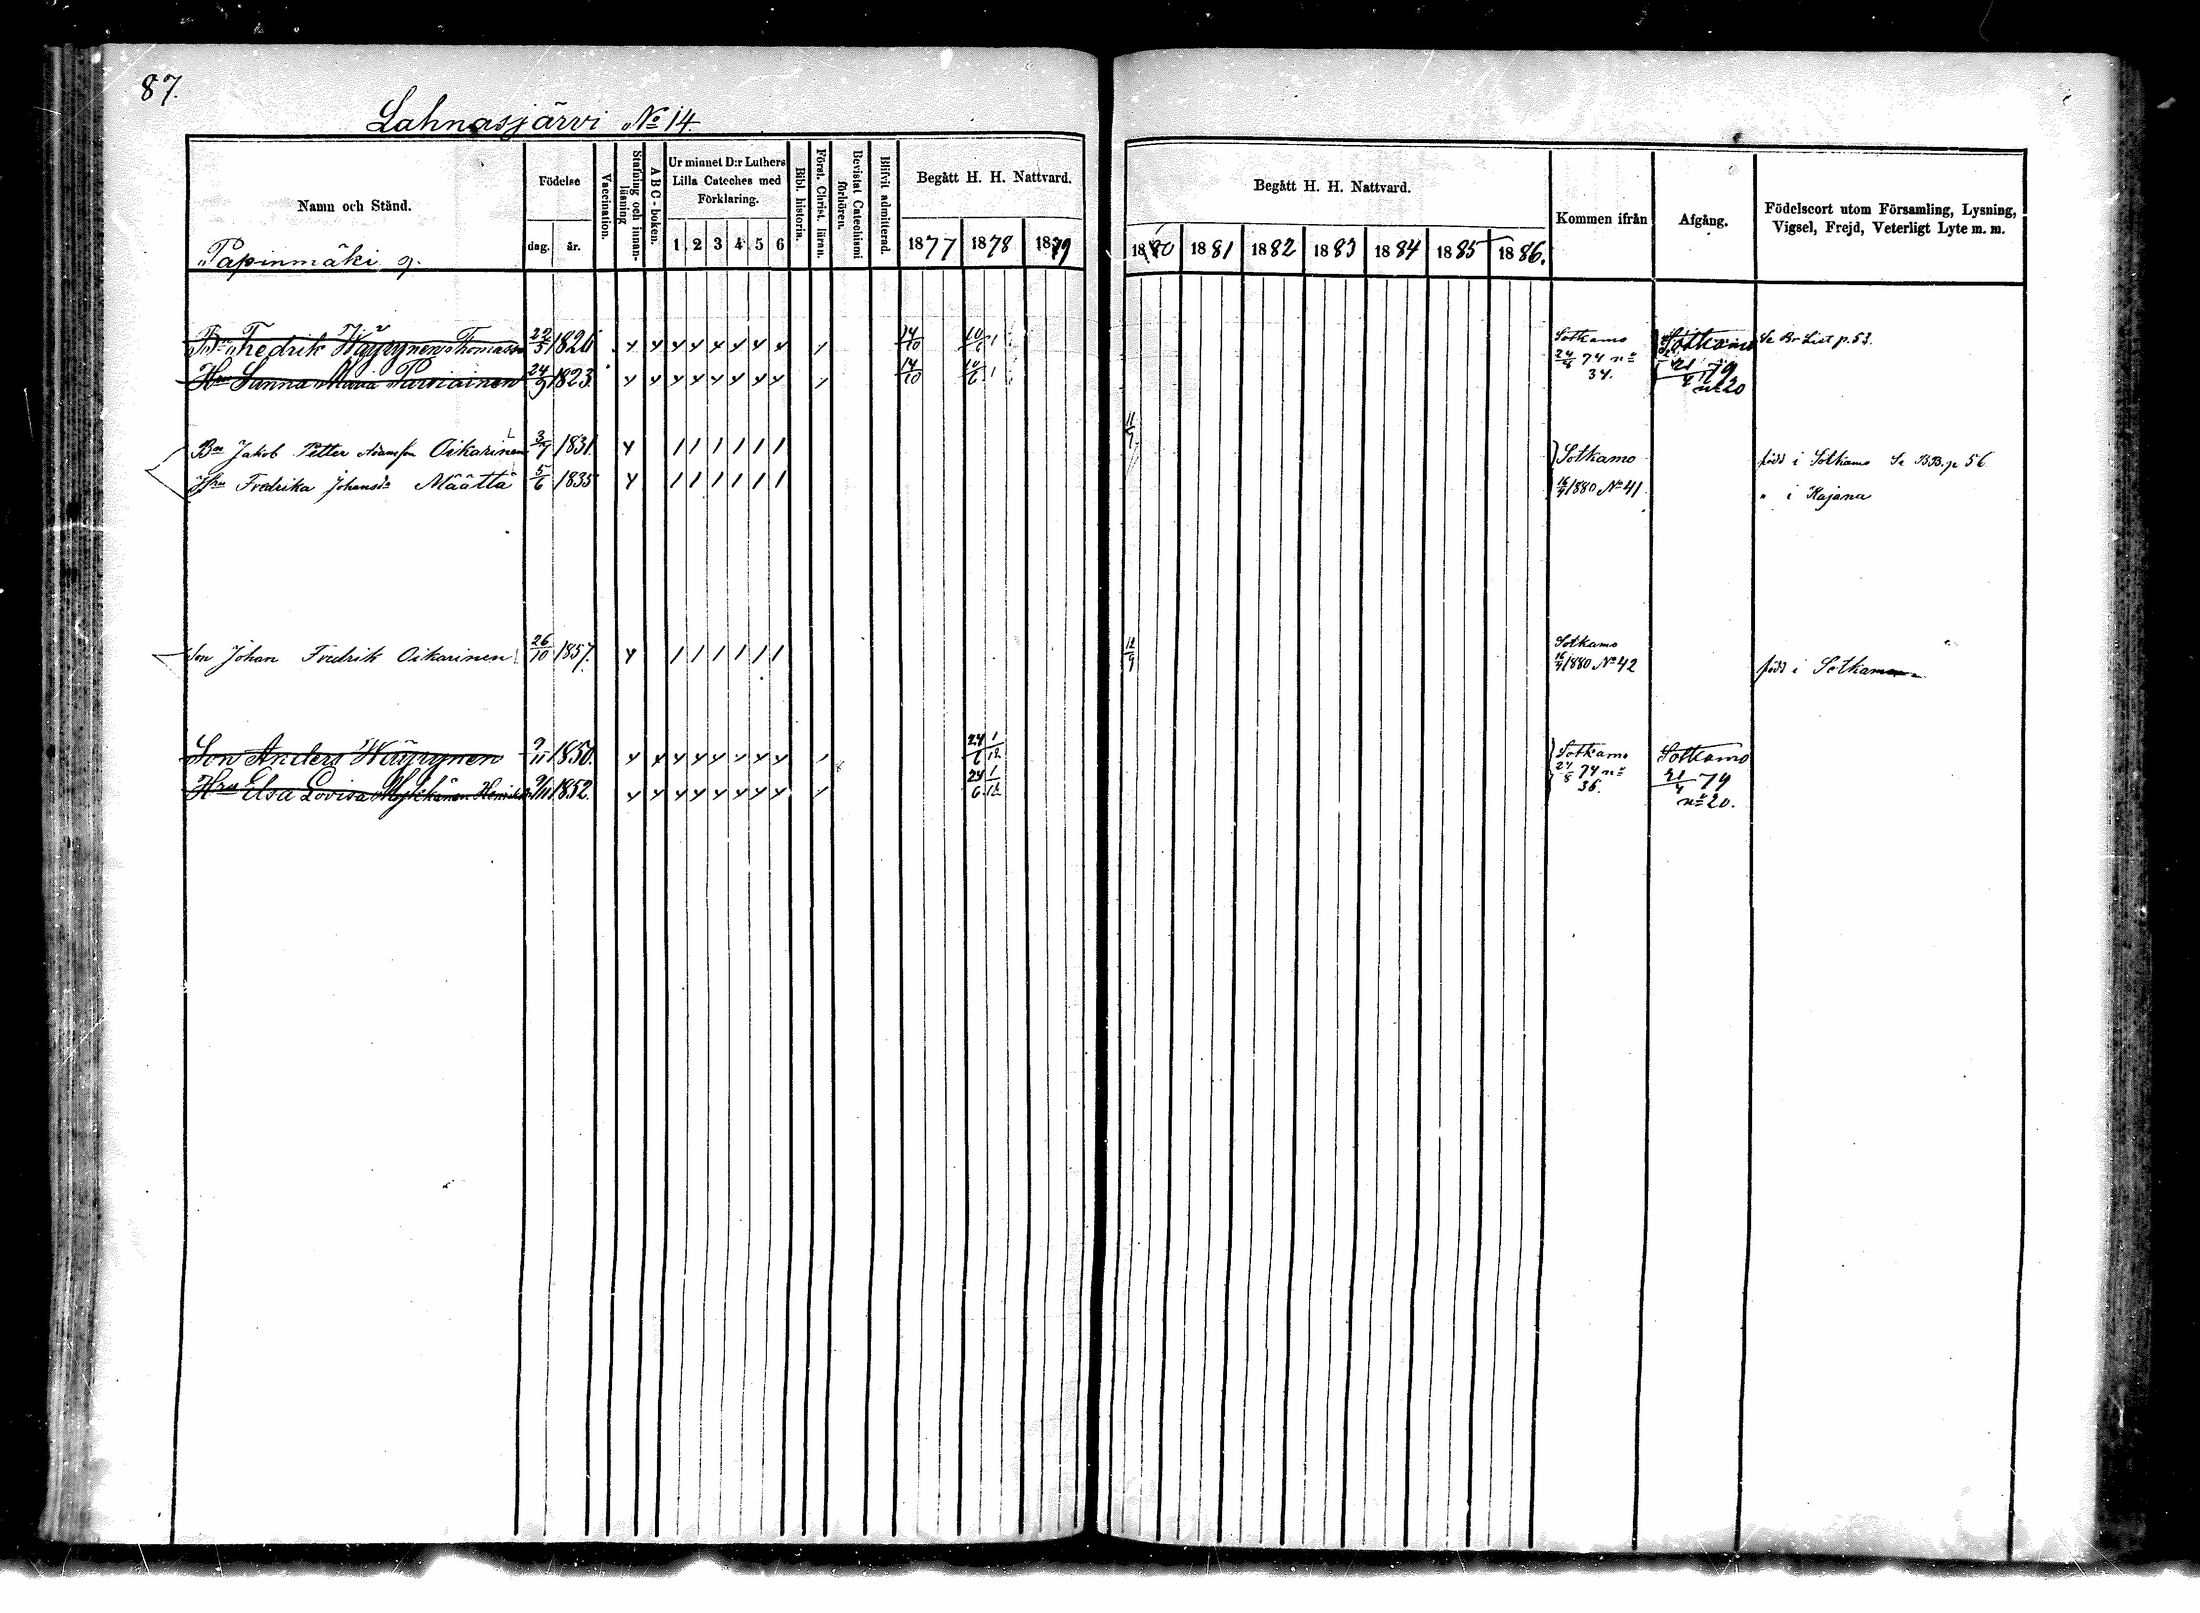 87.
Lahnasjärvi No 14.
Namn och Stånd.
Födelse
dag. år.
Vaccination.
Stafning och innanläsning
ABC-boken.
Ur minnet D:r Luthers Lilla Cateches med Förklaring.
1 2 3 4 5 6
Bibl. historia.
Först. Christ. läran.
Bevistat Catechismi förhören.
Blifvit admitterad.
Begått H. H. Nattvard.
1877 1878 1879
Begått H. H. Nattvard.
1880 1881 1882 1883 1884 1885 1886.
Kommen ifrån
Afgång.
Födelseort utom Församling, Lysning, Vigsel, Frejd, Veterligt Lyte m. m.
Papinmäki
Fredrik Wäyrynen Thomasson 22/5 1826 14/10 Sotkamo 24/8 74 no 34. Sotkamo Se Br List p. 53.
Hu Sanna Maria Parviainen 24/9 1823 14/10 21/4 79 no 20
Bn Jakob Petter Adamson Oikarinen 3/7 1831 4 1 1 1 1 1 1 11/7 Sotkamo född i Sotkamo Se BB. p 56
Hu Fredrika Johansdr Määttä 5/6 1835 4 1 1 1 1 1 1 1880 No 41 " i Kajana
Son Johan Fredrik Oikarinen 26/10 1857. 4 1 1 1 1 1 1 12/9 Sotkamo 1880 No 42 född i Sotkamo
Son Anders Wäyrynen 9/11 1850. 24/6 1/12 Sotkamo 24/8 74 no 36. Sotkamo 21/4 79 no 20.
Hru Elsa Lovisa 1852. 24/6 1/12